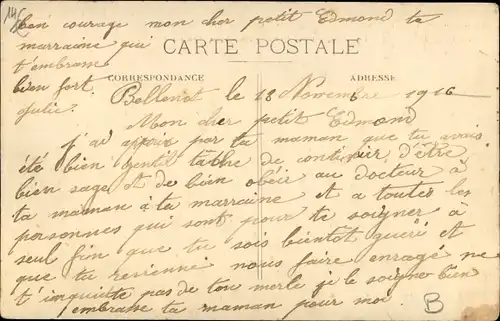 bon courage mon cher petit Edmond ta
marraine qui
t'embrasse
bien fort
Julie
CARTE POSTALE
CORRESPONDANCE
ADRESSE
Bellenot le 18 Novembre 1916
Mon cher petit Edmond
J'ai appris par ta maman que tu avais
été bien gentil tâche de continuer, d'être
bien sage et de bien obéir au docteur à
ta maman à ta marraine et a toutes les
personnes qui sont pour te soigner à
seul fin que tu sois bientôt guéri et
que tu revienne nous faire enragé ne
t'inquitte pas de ton merle je le soigne bien
embrasse ta maman pour moi
B